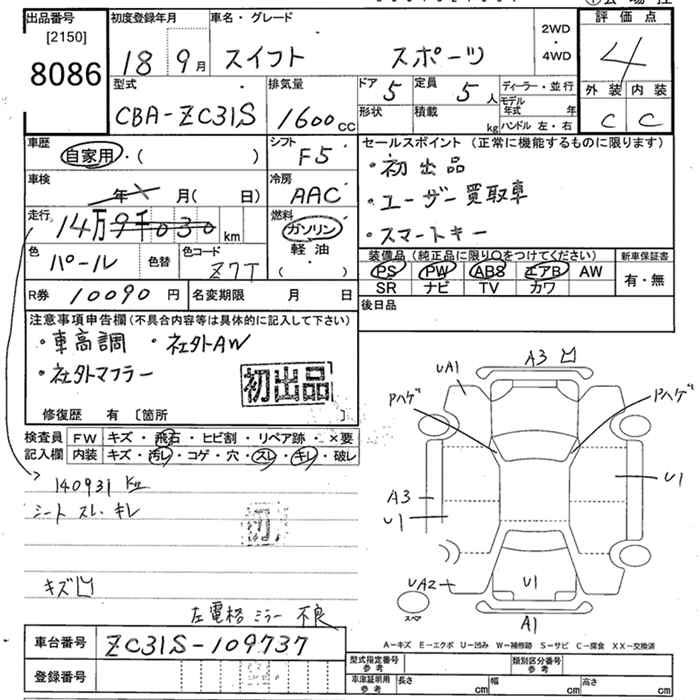 出品番号
[2150]
8086
初度登録年月
18 9月
車名・グレード
スイフト スポーツ
2WD
・
4WD
評価点
4
外装 内装
C C
型式
CBA-ZC31S
排気量
1600 CC
ドア 5
形状
定員 5 人
積載 kg
ディーラー・並行
モデル年式 年
ハンドル 左・右
車歴
自家用・( )
シフト
F5
車検
年 月( 日)
冷房
AAC
走行
14万9千030 km
燃料
ガソリン
軽油
( )
色
パール
色替
色コード
Z7T
R券 10090 円
名変期限 月 日
セールスポイント (正常に機能するものに限ります)
・初出品
・ユーザー買取車
・スマートキー
装備品 (純正品に限り〇をつけてください)
PS PW ABS エアB AW
SR ナビ TV カワ
新車保証書
有・無
後日品
注意事項申告欄(不具合内容等は具体的に記入して下さい)
・車高調 ・社外AW
・社外マフラー
初出品
修復歴 有 〔箇所 〕
検査員
記入欄
FW キズ・飛石・ヒビ割・リペア跡・×要
内装 キズ・汚レ・コゲ・穴・スレ・キレ・破レ
140931 km
シート スレ、キレ
初
キズ凹
左電格ミラー 不良
A3 凹
UA1
Pハゲ
Pハゲ
A3
U1
U1
UA2
U1
スペア
A1
車台番号 ZC31S-109737
登録番号
A-キズ E-エクボ U-凹み W-補修跡 S-サビ C-腐食 XX-交換済
型式指定番号
参考
類別区分番号
参考
車庫証明用
参考
長さ cm
幅 cm
高さ cm